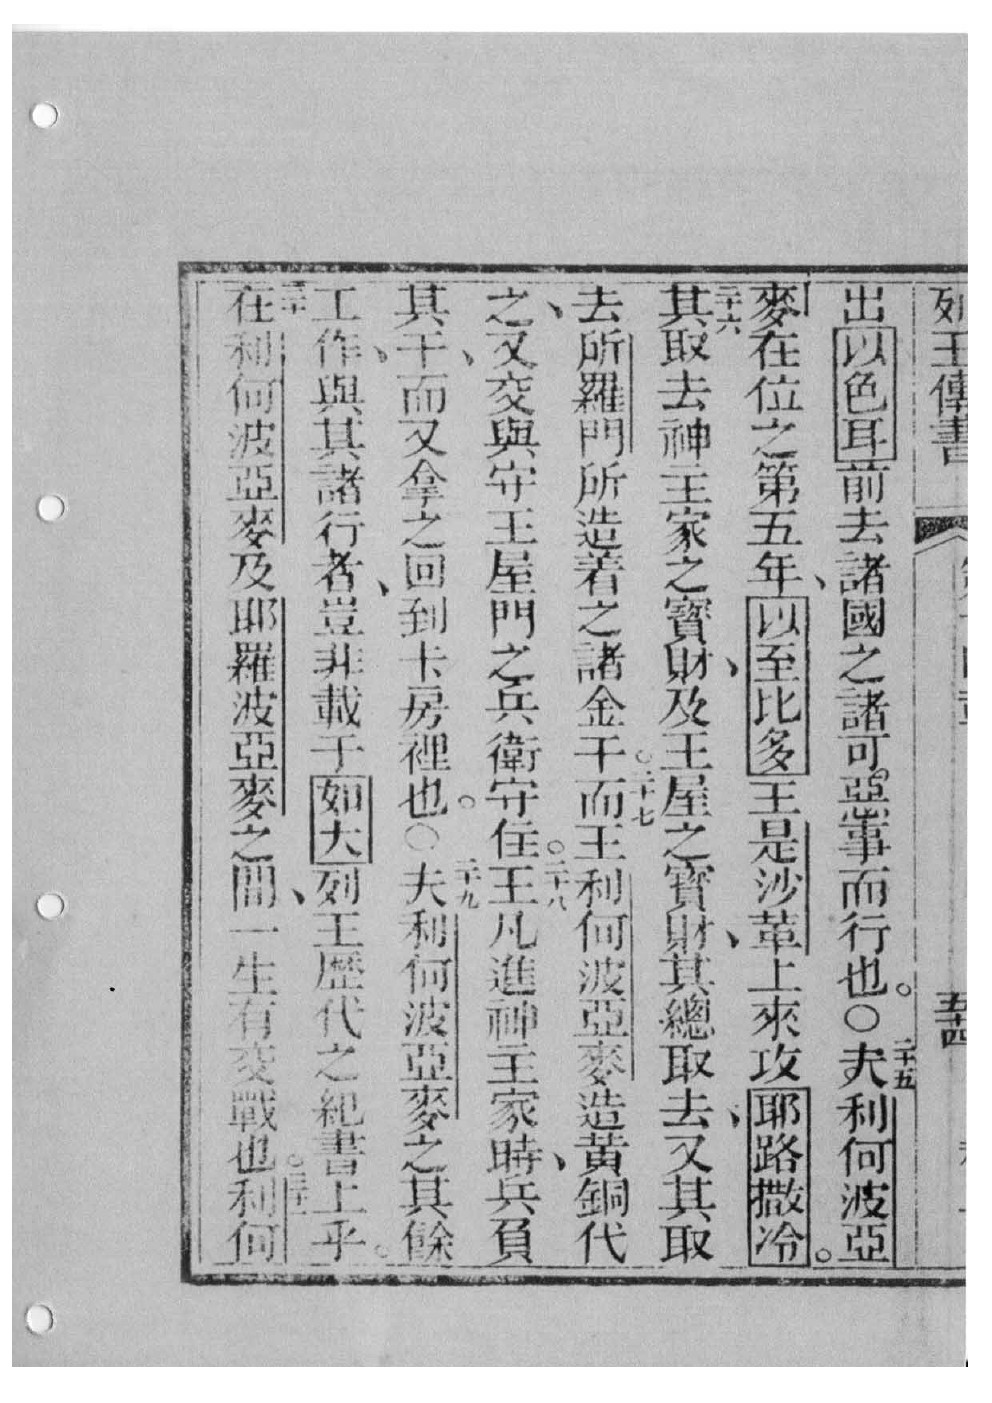 列王傳書 五十四
出以色耳前去諸國之諸可惡事而行也。〇二十五夫利何波亞
麥在位之第五年、以至比多王是沙革上來攻耶路撒冷。
二十六其取去神主家之寶財、及王屋之寶財、其總取去、又其取
去所羅門所造着之諸金干。二十七而王利何波亞麥造黃銅代
之、又交與守王屋門之兵衛守住。二十八王凡進神主家時、兵負
其干、而又拿之回到卡房裡也。〇二十九夫利何波亞麥之其餘
工作、與其諸行者、豈非載于如大列王歷代之紀書上乎。
三十在利何波亞麥及耶羅波亞麥之間、一生有交戰也。三十一利何